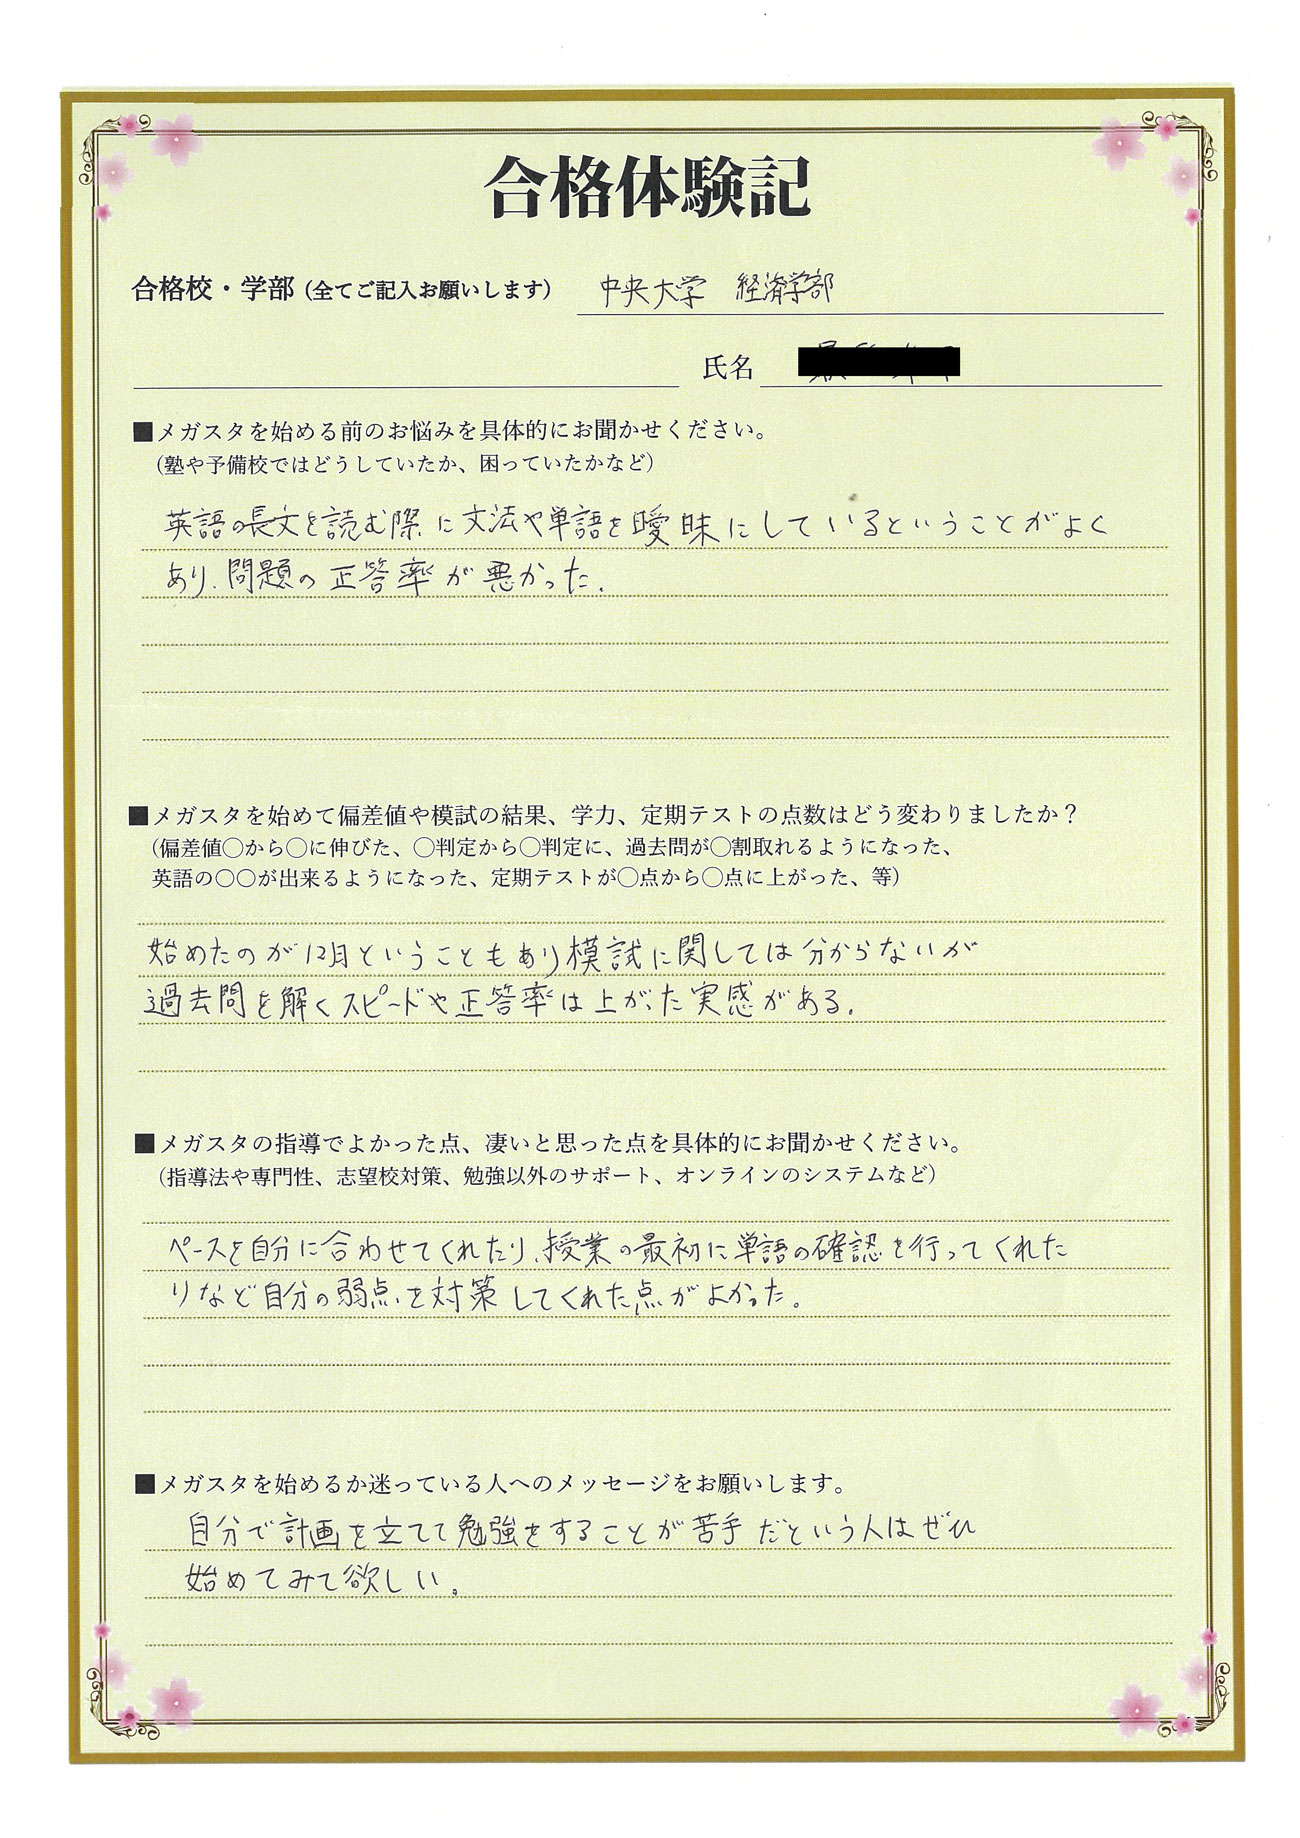 合格体験記
合格校・学部（全てご記入お願いします） 中央大学 経済学部
氏名
■メガスタを始める前のお悩みを具体的にお聞かせください。
（塾や予備校ではどうしていたか、困っていたかなど）
英語の長文を読む際に文法や単語を曖昧にしているということがよく
あり、問題の正答率が悪かった。
■メガスタを始めて偏差値や模試の結果、学力、定期テストの点数はどう変わりましたか？
（偏差値○から○に伸びた、○判定から○判定に、過去問が○割取れるようになった、
英語の○○が出来るようになった、定期テストが○点から○点に上がった、等）
始めたのが12月ということもあり模試に関しては分からないが
過去問を解くスピードや正答率は上がった実感がある。
■メガスタの指導でよかった点、凄いと思った点を具体的にお聞かせください。
（指導法や専門性、志望校対策、勉強以外のサポート、オンラインのシステムなど）
ペースを自分に合わせてくれたり、授業の最初に単語の確認を行ってくれた
りなど自分の弱点を対策してくれた点がよかった。
■メガスタを始めるか迷っている人へのメッセージをお願いします。
自分で計画を立てて勉強をすることが苦手だという人はぜひ
始めてみて欲しい。